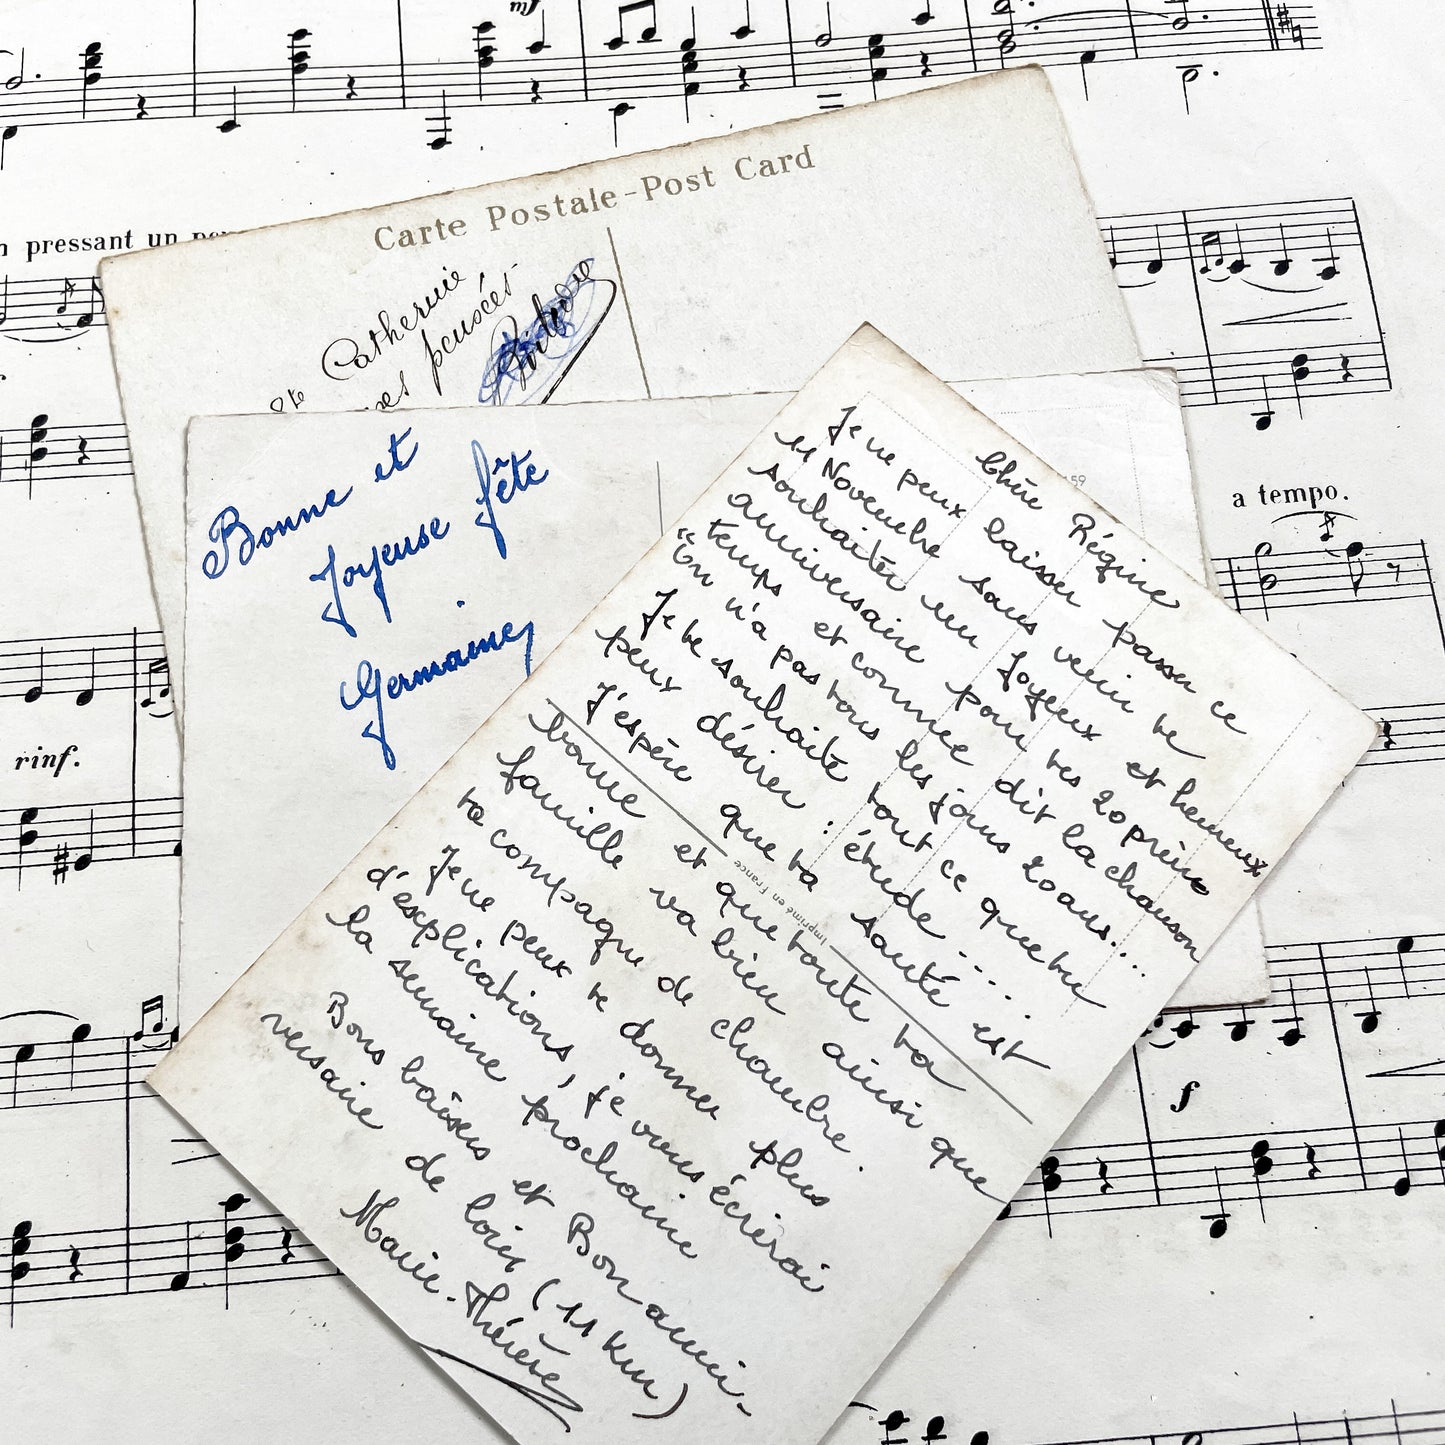 mf
pressant un
Carte Postale - Post Card
Ste Catherine
pensées
Bonne et
Joyeuse fête
Germaine
59
a tempo.
rinf.
f
Chère Régine
Je ne peux laisser passer ce
11 Novembre sans venir te
souhaiter un Joyeux et heureux
anniversaire pour tes 20 prin
temps et comme dit la chanson
"On n'a pas tous les jours 20 ans...
Je te souhaite tout ce que tu
peux désirer : étude.....
J'espère que ta santé est
bonne et que toute ta
famille va bien ainsi que
ta compagne de chambre.
Je ne peux te donner plus
d'explications, je vous écrirai
la semaine prochaine
Bons baisers et Bon anni-
versaire de loin (11 km)
Marie-Thérèse
Imprimé en France